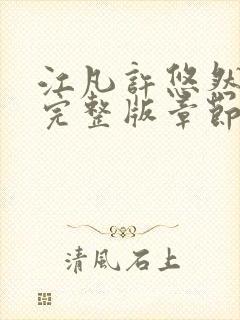 江凡許悠然
完整版章節
清風石上